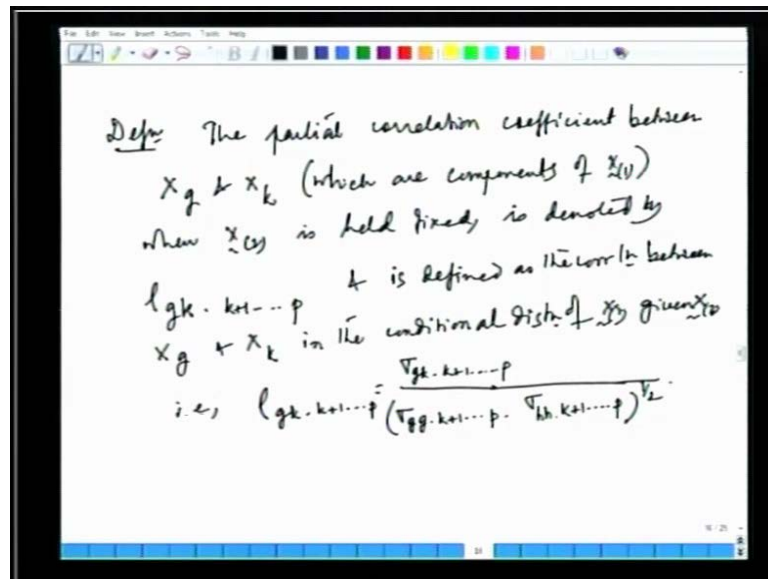 File Edit View Insert Actions Tools Help
Defn The partial correlation coefficient between
X_g & X_k (which are components of X_(1))
when X_(2) is held fixed, is denoted by
ρ_gk.k+1...p & is defined as the corrln between
X_g & X_k in the conditional distn of X_(1) given X_(2)
i.e, ρ_gk.k+1...p = σ_gk.k+1...p / (σ_gg.k+1...p . σ_hh.k+1...p)^1/2 .